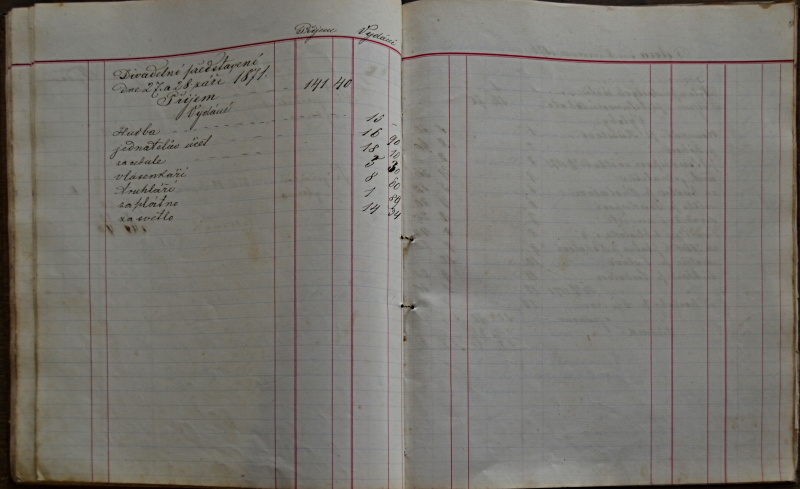 Příjem Vydání
Divadelní představení
dne 27. a 28 září 1871.
Příjem 141 40
Vydání
Hudba 15 -
jednatelův účet 16 90
za cedule 18 10
vlásenkáři 5
truhláři 8 60
za plátno 1 89
za světlo 14 34